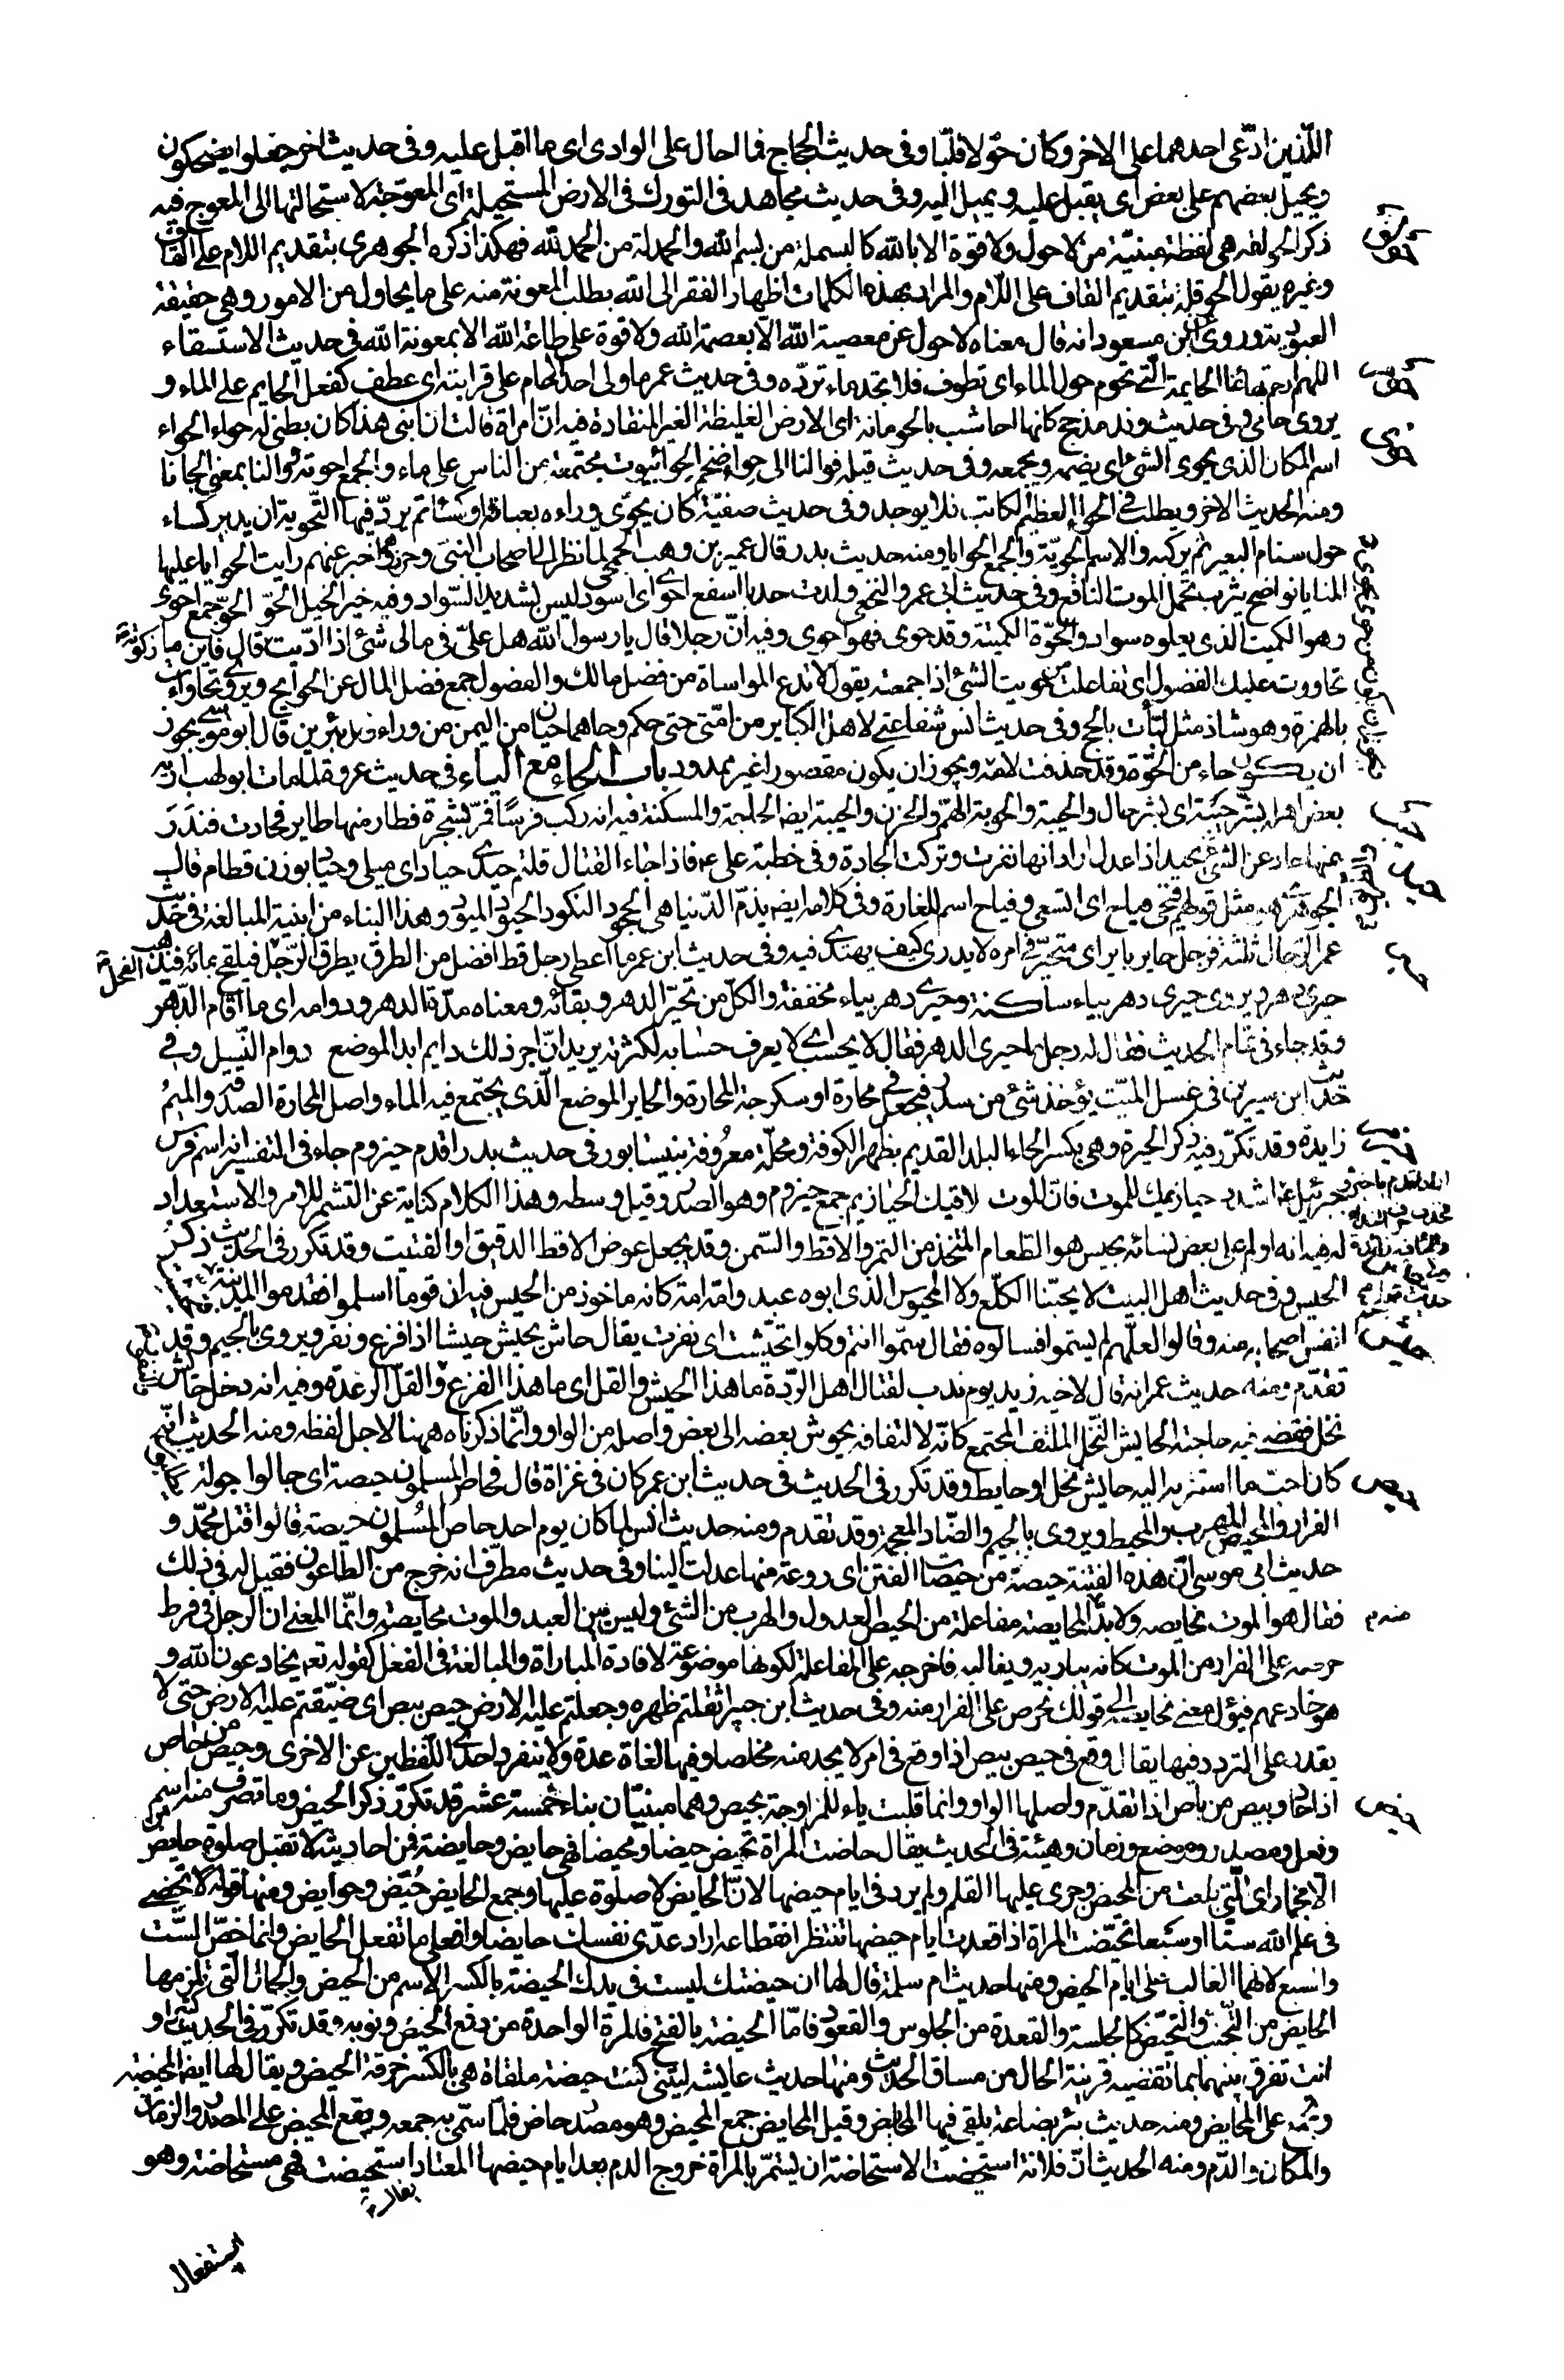 اللذين ادّعى احدهما على الاخر وكان حوّلا قلّبا وفى حديث الحجاج فما احال على الوادى اى ما اقبل عليه وفى حديث اخر جعلوا يضحكون
ويحيل بعضهم على بعض اى يقبل عليه ويميل اليه وفى حديث مجاهد فى التورك فى الارض المستحيلة اى المعوّجة لاستحالتها الى المعوج فيه
حولق
ذكر الحولقة هى لفظة مبنيّة من لا حول ولا قوة الا بالله كالبسملة من بسم الله والحمدلة من الحمد لله فهكذا ذكره الجوهرى بتقديم اللام على القاف
وغيره يقول الحوقلة بتقديم القاف على اللام والمراد بهذه الكلمات اظهار الفقر الى الله بطلب المعونة منه على ما يحاول من الامور وهى حقيقة
العبودية وروى ابن مسعود انه قال معناه لا حول عن معصية الله الا بعصمة الله ولا قوة على طاعة الله الا بمعونة الله فى حديث الاستسقاء
اللهم ارحم بهائمنا الحايمة التى تحوم حول الماء اى تطوف فلا تجد ماء ترده وفى حديث عمر ما ولى احد الا حام على قرابته اى عطف كفعل الحايم على الماء و
يروى حامى وفى حديث وفد مذحج كانها اخاشب بالحومانة اى الارض الغليظة الغير المنقادة فيه ان امراة قالت ان ابنى هذا كان بطنى له حواء الحواء
حوى
اسم المكان الذى يحوى الشئ اى يضمه ويجمعه وفى حديث قيلة فوالنا الى حواء ضخم الحواء بيوت مجتمعة من الناس على ماء والجمع احوية ووالنا بمعنى لجانا
ومنه الحديث الاخر ويطلب فى الحواء العظيم الكاتب فلا يوجد وفى حديث صفيّة كان يحوّى وراءه بعباءة او كساء ثم يردفها التحوية ان يدير كساء
حول سنام البعير ثم يركبه والاسم الحويّة والجمع الحوايا ومنه حديث بدر قال عمير بن وهب الجمحى لما نظر الى اصحاب النبى وحزرهم واخبر عنهم رايت الحوايا عليها
المنايا نواضح يثرب تحمل الموت الناقع وفى حديث ابى عمرو النخعى ولدت جديا اسفع احوى اى اسود ليس بشديد السواد وفيه خير الخيل الحوّ الحوّ جمع احوى
وهو الكميت الذى يعلوه سواد والحوّة الكمتة وقد حوى فهو احوى وفيه انّ رجلا قال يا رسول الله هل علىّ فى مالى شئ اذا ادّيت زكوته قال فاين ما
تحاووت عليك الفضول اى تفاعلت من حويت الشئ اذا جمعته يقول لا تدع المواساة من فضل مالك والفضول جمع فضل المال عن الحوايج ويروى تحاوات
بالهمزة وهو شاذ مثل لبّأت بالحج وفى حديث انس شفاعتى لاهل الكباير من امّتى حتى حكم وحا هما حيّان من اليمن من وراء رمل يبرين قال ابو موسى يجوز
ان يكون حاء من الحوّة وقد حذفت لامه ويجوز ان يكون مقصورا غير ممدود باب الحاء مع الياء فى حديث عروة لما مات ابو لهب اريه
حيب
بعض اهله بشرّ حيبة اى بشر حال والحيبة والحوبة الهمّ والحزن والحيبة ايضا الحاجة والمسكنة فيه انه ركب فرسا فمرّ بشجرة فطار منها طاير فحادت فندر
حيد
عنها حاد عن الشئ يحيد اذا عدل اراد انها نفرت وتركت الجادة وفى خطبة على ع فاذا جاء القتال قلتم حيدى حياد اى ميلى وحياد بوزن قطام قال
الجوهرى هو مثل قولهم فيحى فياح اى اتسعى وفياح اسم للغارة وفى كلامه ايضا يذمّ الدنيا هى الجحود الكنود الحيود الميود وهذا البناء من ابنية المبالغة فى حديث
حير
عمر الرجال ثلثة فرجل حاير باير اى متحيّر فى امره لا يدرى كيف يهتدى فيه وفى حديث ابن عمر ما اعطى رجل قط افضل من الطرق يطرق الرجل الفحل فيلقح مائة فيذهب
حيرى دهر ويروى حيرى دهر بياء ساكنة وحيرى دهر بياء مخففة والكل من تحيّر الدهر وبقائه ومعناه مدّة الدهر ودوامه اى ما اقام الدهر
وقد جاء فى تمام الحديث فقال له رجل ما حيرى الدهر فقال لا يحسب اى لا يعرف حسابه لكثرته يريد انّ اجر ذلك دايم ابدا لموضع دوام النسل وفى
حديث ابن سيرين فى غسل الميّت يؤخذ شئ من سدر فيجعل فى محارة او سكرجة المحارة والحاير الموضع الذى يجتمع فيه الماء واصل المحارة الصدفة والميم
زايدة وقد تكرّر فيه ذكر الحيرة وهى بكسر الحاء البلد القديم بظهر الكوفة ومحلّة معروفة بنيسابور فى حديث بدر اقدم حيزوم جاء فى التفسير انه اسم فرس
جبرئيل ع اشدد حيازيمك للموت فان الموت لاقيك الحيازيم جمع حيزوم وهو الصدر وقيل وسطه وهذا الكلام كناية عن التشمر للامر والاستعداد
له فيه انه اولم على بعض نسائه بحيس هو الطعام المتخذ من التمر والاقط والسمن وقد يجعل عوض الاقط الدقيق او الفتيت وقد تكرر فى الحديث ذكر
الحيس وفى حديث اهل البيت لا يحبّنا اللكع ولا المحيوس الذى ابوه عبد وامّه امة كانه ماخوذ من الحيس فيه ان قوما اسلموا فقدموا المدينة
حيش
انفس اصحابه منه وقالوا لعلّهم لم يسمّوا فسالوه فقال سمّوا انتم وكلوا تحيّشت اى نفرت يقال حاش يحيش حيشا اذا فزع ونفر ويروى بالجيم وقد
تقدّم ومنه حديث عمر انه قال لاخيه زيد يوم ندب لقتال اهل الردّة ما هذا الحيش والقل اى ما هذا الفزع والقل الرعدة وفيه انه دخل حايش
نخل فقضى فيه حاجته الحايش النخل الملتف المجتمع كانّه لالتفافه يحوش بعضه الى بعض واصله من الواو وانّما ذكرناه ههنا لاجل لفظه ومنه الحديث انّه
حيص
كان احبّ ما استتر به اليه حايش نخل او حايط وقد تكرر فى الحديث فى حديث ابن عمر كان فى غزاة قال فحاص المسلمون حيصة اى جالوا جولة
الفرار والمحيص المهرب والمحيط ويروى بالجيم والضاد المعجمة وقد تقدم ومنه حديث انس لما كان يوم احد حاص المسلمون حيصة قالوا قتل محمّد و
حديث ابى موسى انّ هذه الفتنة حيصة من حيصات الفتن اى روغة منها عدلت الينا وفى حديث مطرّف انه خرج من الطاعون فقيل له فى ذلك
فقال هو الموت نحايصه ولا بدّ المحايصة مفاعلة من الحيص العدول والهرب من الشئ وليس بين العبد والموت محايصة وانّما المعنى ان الرجل فى فرط
حرصه على الفرار من الموت كانه يباريه ويغالبه فاخرجه على المفاعلة لكونها موضوعة لافادة المباراة والمبالغة فى الفعل كقوله تعم يخادعون الله و
هو خادعهم فيؤل معنى نحايصه الى قولك نحرص على الفرار منه وفى حديث ابن جبير اثقلتم ظهره وجعلتم عليه الارض حيص بيص اى ضيّقتم عليه الارض حتى لا
يقدر على التردد فيها يقال وقع فى حيص بيص اذا وقع فى امر لا يجد منه مخلصا وفيها لغات عدة ولا ينفرد احدى اللفظين عن الاخرى وحيص من حاص
حيض
اذا حاد وبيص من باص اذا تقدّم واصلها الواو وانما قلبت ياء للمزاوجة بحيص وهما مبنيّان بناء خمسة عشر قد تكرّر ذكر الحيض وما تصرف منه من اسم
وفعل ومصدر وموضع وزمان وهيئة فى الحديث يقال حاضت المراة تحيض حيضا ومحيضا فهى حايض وحايضة فمن احاديثه لا تقبل صلوة حايض
الا بخمار اى التى بلغت من المحيض وجرى عليها القلم ولم يرد فى ايام حيضها لانّ الحايض لا صلوة عليها وجمع الحايض حُيّض وحوايض ومنها قوله تحيّضى
فى علم الله ستا او سبعا تحيّضت المراة اذا قعدت ايام حيضها تنتظر انقطاعه اراد عدّى نفسك حايضا وافعلى ما تفعل الحايض وانما خصّ الستّ
والسبع لانهما الغالب على ايام الحيض ومنها حديث ام سلمة قال لها ان حيضتك ليست فى يدك الحيضة بالكسر الاسم من الحيض والحال التى تلزمها
الحايض من التجنّب والتحيّض كالجلسة والقعدة من الجلوس والقعود فامّا الحيضة بالفتح فالمرة الواحدة من دفع الحيض ونوبه وقد تكرّر فى الحديث كثيرا و
انت تفرق بينهما بما تقضيه قرينة الحال من مساق الحديث ومنها حديث عايشة ليتنى كنت حيضة ملقاة هى بالكسر خرقة الحيض ويقال لها ايضا المحيضة
وتجمع على المحايض ومنه حديث بئر بضاعة يلقى فيها المحايض وقيل المحايض جمع المحيض وهو مصدر حاض فلمّا سمّى به جمعه ويقع المحيض على المصدر والزمان
والمكان والدّم ومنه الحديث انّ فلانة استحيضت الاستحاضة ان يستمرّ بالمراة خروج الدم بعد ايام حيضها المعتاد استحيضت فهى مستحاضة وهو
استفعال